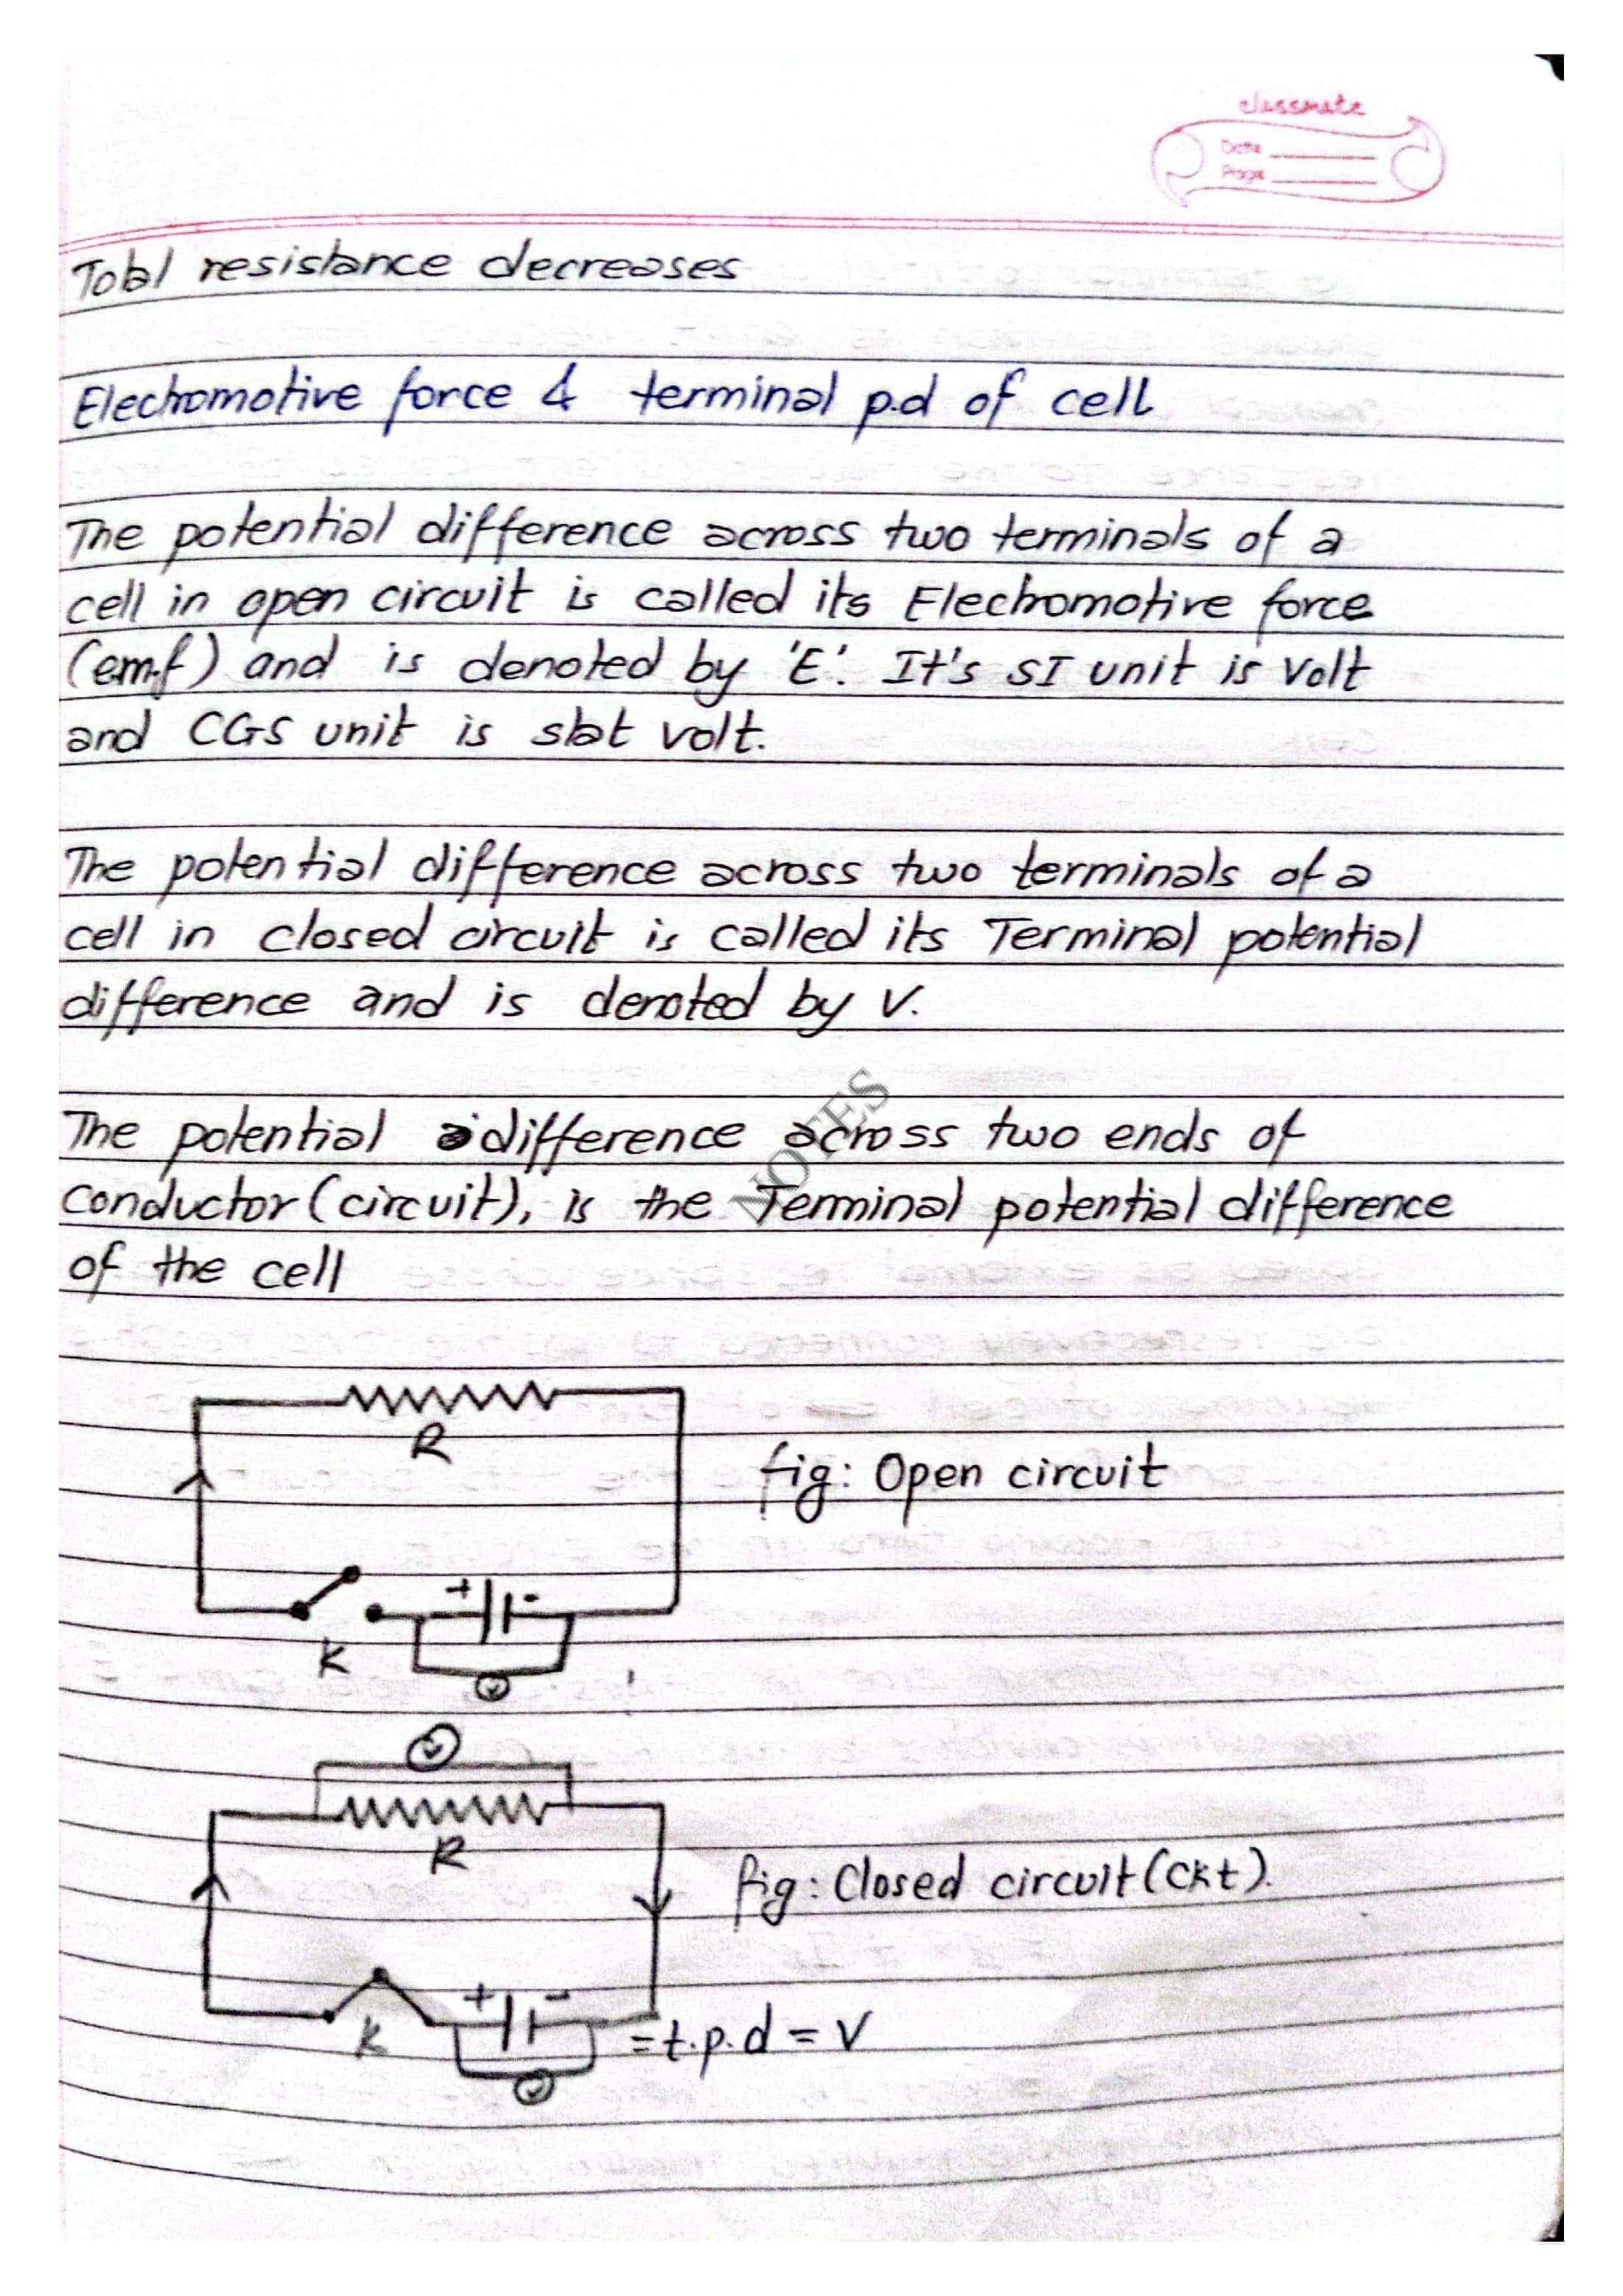 classmate
Date
Page
Total resistance decreases
Electromotive force & terminal p.d of cell
The potential difference across two terminals of a
cell in open circuit is called its Electromotive force
(em.f) and is denoted by 'E'. It's SI unit is Volt
and CGS unit is stat volt.
The potential difference across two terminals of a
cell in closed circuit is called its Terminal potential
difference and is denoted by V.
NOTES
The potential difference across two ends of
conductor (circuit), is the Terminal potential difference
of the cell
R
fig: Open circuit
+ -
K
V
V
R
fig: Closed circuit (ckt).
+ -
K
= t.p.d = V
V